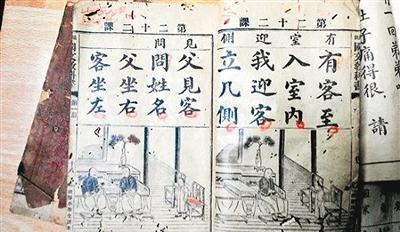 子痛得很，請
第二十二課
室
側
有客至
入室內
我迎客
立几側
第二十二課
見
問
父見客
問姓名
父坐右
客坐左